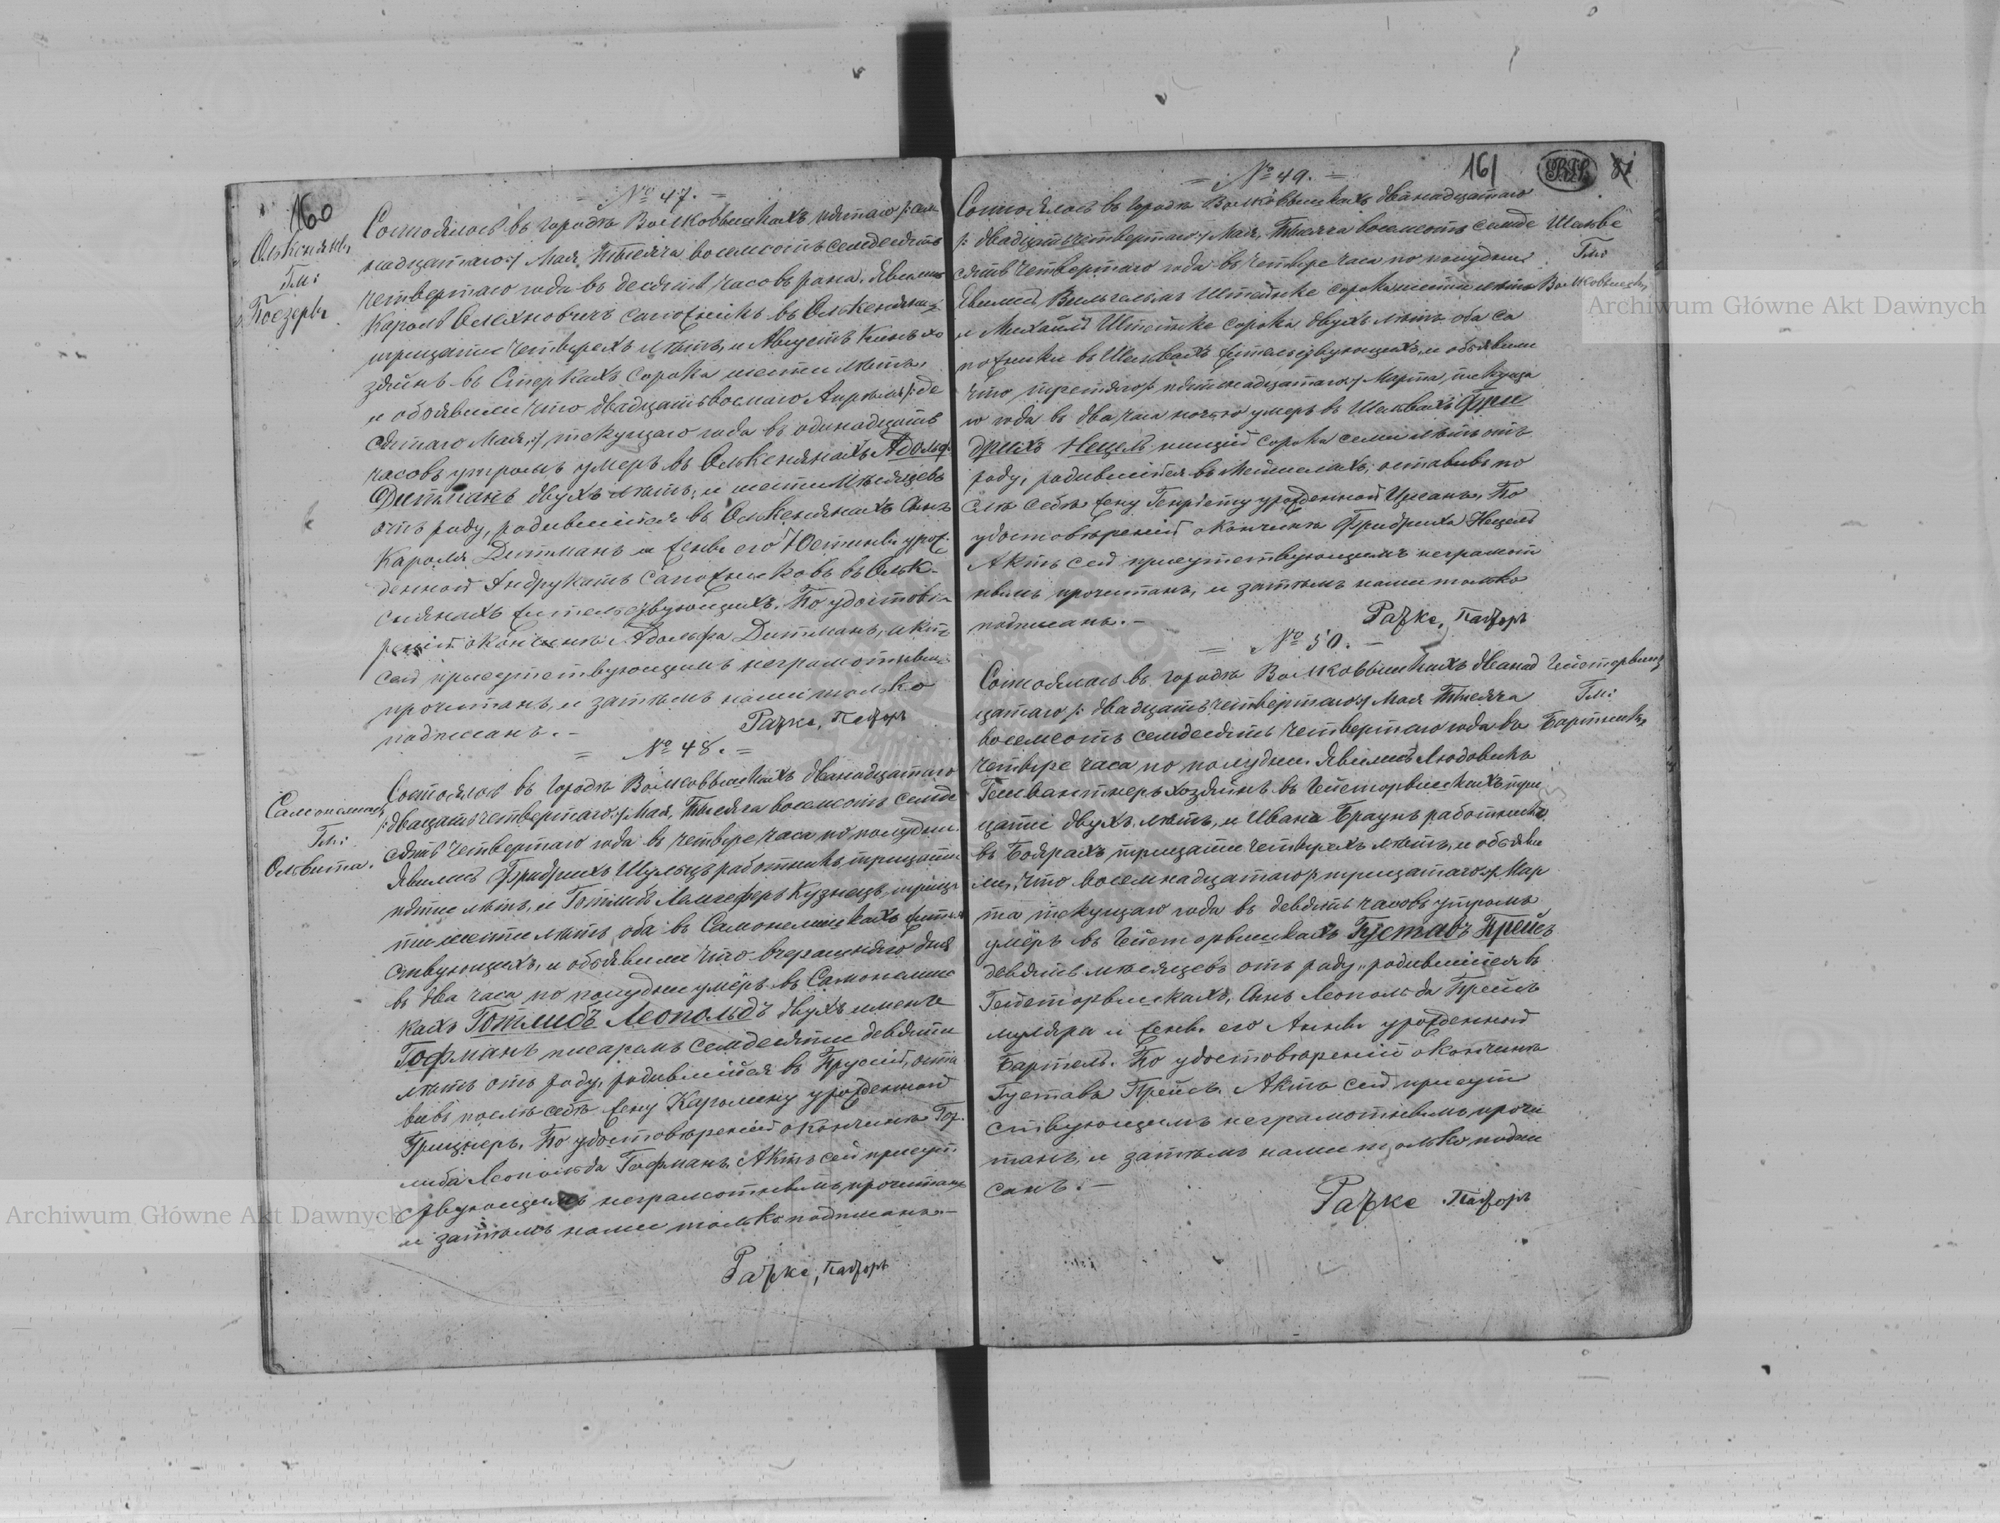 160
Олькснянъ
Гм:
Поезеры
= № 47. =
Состоялось въ городѣ Волковышкахъ пятаго /: сем
надцатаго :/ Мая, Тысяча восемьсотъ семдесятъ
четвертаго года въ десять часовъ рана. Явились
Кароль Олехновичъ сапожникъ въ Олькснянахъ
тридцати четырехъ лѣтъ, и Августъ хо
зяинъ въ Стеркахъ сорока шести лѣтъ,
и объявили что двадцать восьмаго Апрѣля /: де
сятаго Мая, :/ текущаго года въ одинадцать
часовъ утромъ умеръ въ Олькснянахъ Адольфъ
Дитманъ двухъ лѣтъ, и шести мѣсяцевъ
отъ роду, родившійся въ Олькснянахъ сынъ
Кароля Дитманъ и жены его Юстины урож
денной Андрукатъ сапожниковъ въ Ольк-
снянахъ жительствующихъ. По удостовѣ
реніи окончины Адольфа Дитманъ, актъ
сей присутствующимъ неграмотнымъ
прочитанъ, и затѣмъ нами только
подписанъ. –
Рачке, Пасторъ
= № 48. =
Гм:
Ольвита.
Состоялось въ городѣ Волковышкахъ двѣнадцатаго
/: двадцать четвертаго :/ Мая, Тысяча восемьсотъ семде
сятъ четвертаго года въ четыре часа по полудни.
Явились Фридрихъ Шульцъ работникъ тридцати
пяти лѣтъ, и Готлибъ Лангеферъ кузнецъ, тридца
ти шести лѣтъ, оба въ Самонелишкахъ житель
ствующихъ, и объявили что вчерашняго дня
въ два часа по полудни умеръ въ Самонелиш
кахъ Готлибъ Леопольдъ двухъ именъ
Гофманъ писаремъ семдесяти девяти
лѣтъ отъ роду, родившійся въ Пруссіи, оста
вивъ послѣ себѣ жену Каролину урожденной
Грицнеръ. По удостовѣреніи окончины Гот
либа Леопольда Гофманъ, Актъ сей присут
ствующимъ неграмотнымъ прочитанъ,
и затѣмъ нами только подписанъ. –
Рачке, Пасторъ
161
= № 49. =
Состоялось въ городѣ Волковышкахъ двѣнадцатаго
/: двадцать четвертаго :/ Мая, Тысяча восемьсотъ семде
сятъ четвертаго года въ четыре часа по полудни.
Явились Вильгельмъ Штейнке сорока шести лѣтъ
и Михаилъ Штейнке сорока двухъ лѣтъ оба са
пожники въ Шильвахъ жительствующихъ, и объявили
что третяго /: пятнадцатаго :/ Марта, текуща
го года въ два часа ночью умеръ въ Шильвахъ Фри
дрихъ Нецель нищій сорока семи лѣтъ отъ
роду, родившійся въ оставивъ по
слѣ себѣ жену Генріету урожденной По
удостовѣреніи окончины Фридриха Нецель
Актъ сей присутствующимъ неграмот
нымъ прочитанъ, и затѣмъ нами только
подписанъ. –
Рачке, Пасторъ
Шильве
Гм:
Волковышки
= № 50. –
Состоялось въ городѣ Волковышкахъ двѣнад
цатаго /: двадцать четвертаго :/ Мая Тысяча
восемьсотъ семдесятъ четвертаго года въ
четыре часа по полудни. Явились Людовикъ
хозяинъ въ Гейсторвишкахъ три
дцати двухъ лѣтъ, и Ивана Браунъ работникъ
въ Боярахъ тридцати четырехъ лѣтъ, и объяви
ли, что восемнадцатаго /: тридцатаго :/ Мар
та текущаго года въ девять часовъ утромъ
умеръ въ Гейсторвишкахъ Густавъ Прейсъ
девять мѣсяцевъ отъ роду, родившійся въ
Гейсторвишкахъ, сынъ Леопольда Прейсъ
муляра и жены его Анны урожденной
Бартель. По удостовѣреніи окончины
Густава Прейсъ. Актъ сей присут
ствующимъ неграмотнымъ прочи
танъ, и затѣмъ нами только подпи
санъ. –
Рачке Пасторъ
Гейсторвишки
Гм:
Бартники
Archiwum Główne Akt Dawnych
Archiwum Główne Akt Dawnych